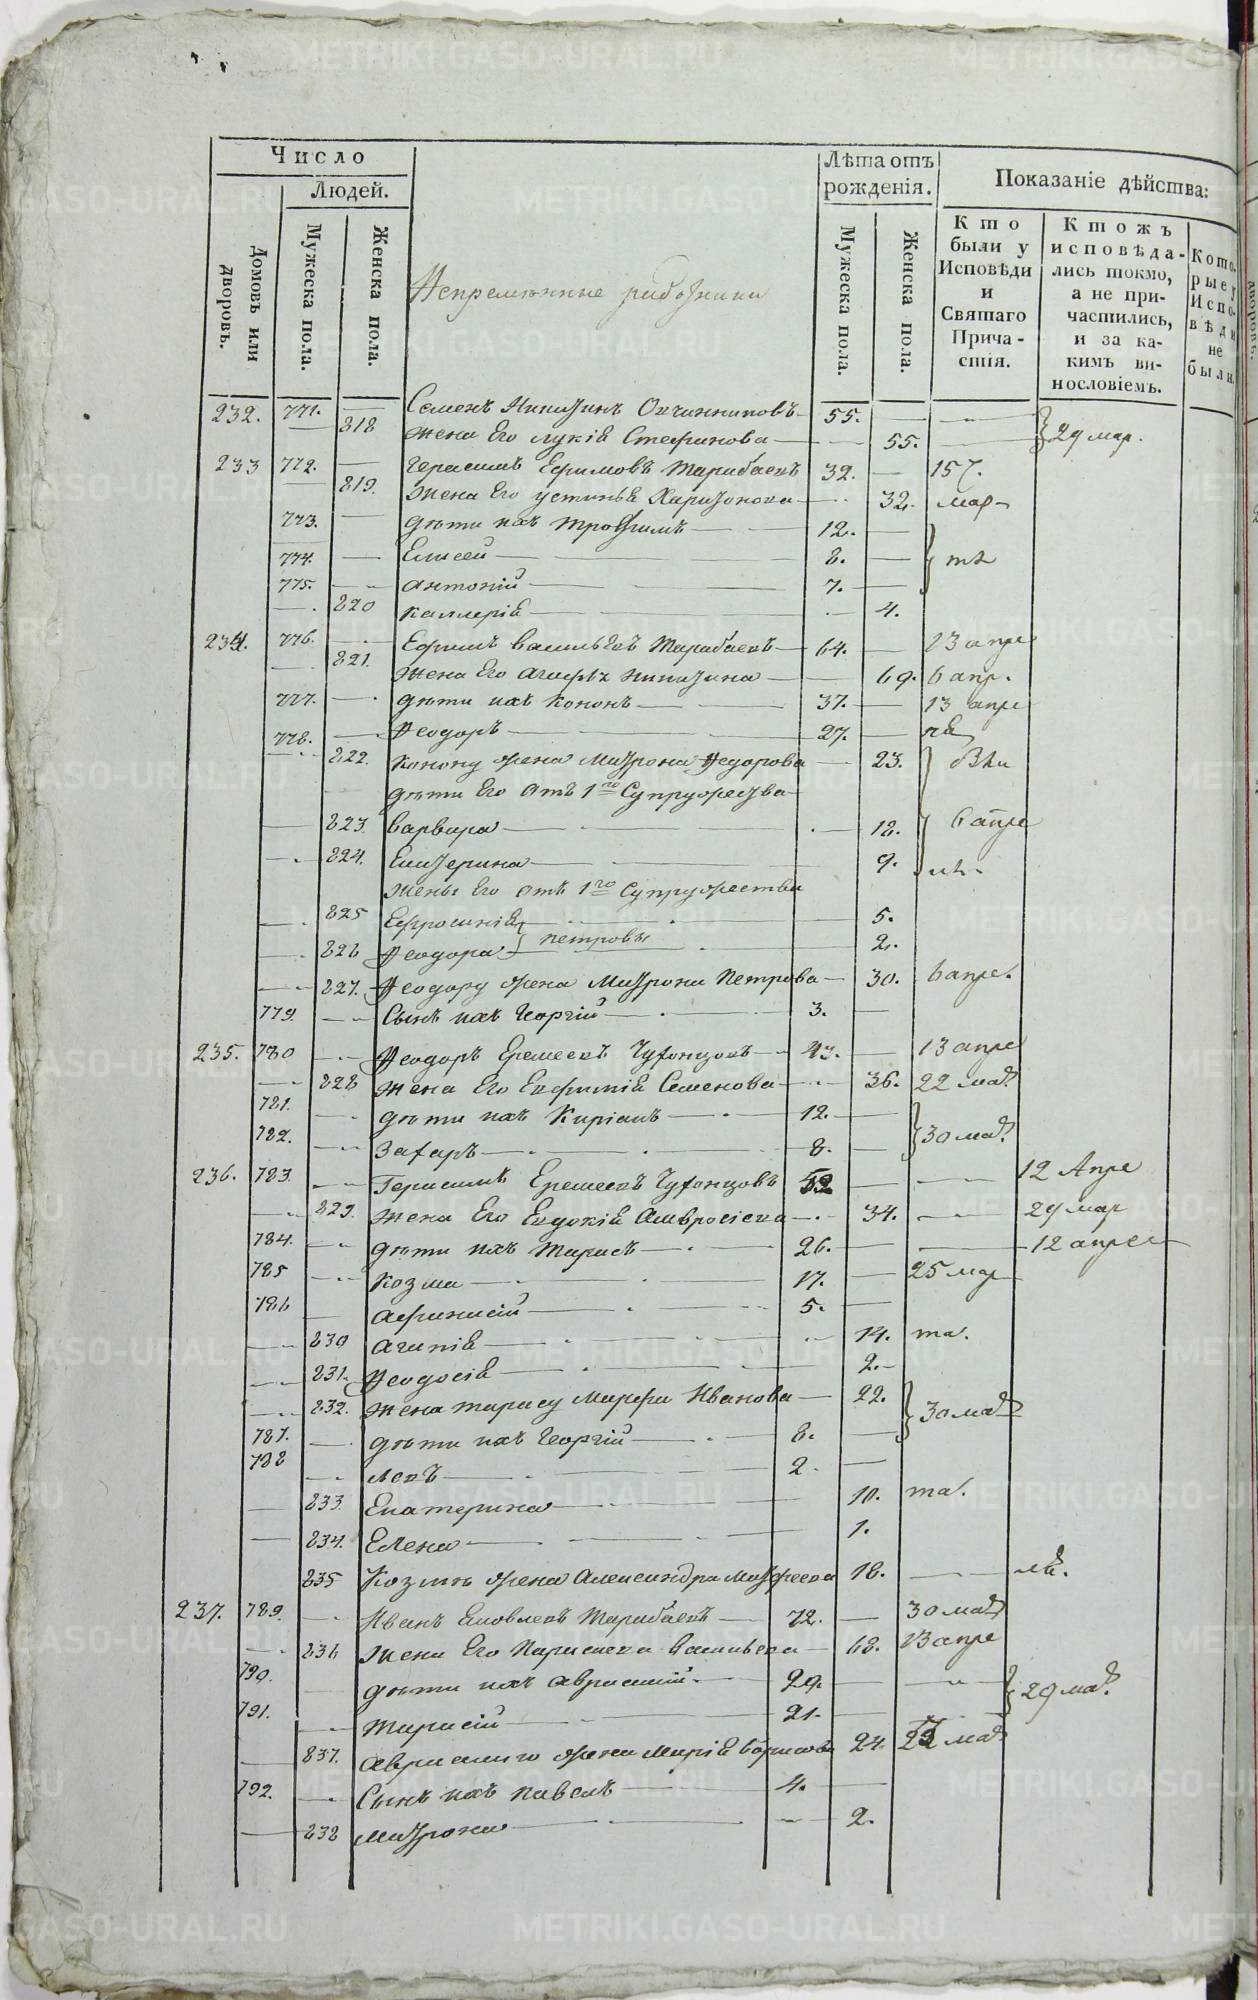 Число
Людей.
Домовъ или дворовъ.
Мужеска пола.
Женска пола.
Непременные работники
Лѣта отъ рожденія.
Мужеска пола.
Женска пола.
Показаніе дѣйства:
Кто были у Исповѣди и Святаго Причастія.
Ктожъ исповѣдались токмо, а не причастились, и за какимъ винословіемъ.
Которые у Исповѣди не были.
232. 771. Семенъ Никитинъ Овчинниковъ 55.
818 жена Его лукіа Стефанова 55. } 29 мар.
233 772. Герасимъ Ефимовъ Тарабаевъ 32. 15
819. жена Его устинья Харитонова 32. мар
773. дѣти ихъ трофимъ 12.
774. Елисей 8. } тѣ
775. антоній 7.
820 каллеріа 4.
234. 776. Ефимъ васильевъ Тарабаевъ 64. 13 апре
821. жена Его агафья никитина 69. 6 апр.
777. дѣти ихъ кононъ 37. 13 апре
778. Ѳеодоръ 27.
822. конону жена матрона Ѳедорова 23.
дѣти Его отъ 1го Супружества
823. варвара 12. 6 апре
824. Екатерина 9.
жены Его отъ 1го Супружества
825 Ефросиніа 5.
826 Ѳеодора } петровы 2.
827. Ѳеодору жена Матрона Петрова 30. 6 апре.
779. Сынъ ихъ Георгій 3.
235. 780 Ѳеодоръ Еремеевъ Чухонцовъ 43. 13 апре
828 жена Его Евфиміа Семенова 36. 22 мар.
781. дѣти ихъ Киріакъ 12.
782. Захаръ 8. } 30 мар.
236. 783. Герасимъ Еремеевъ Чухонцовъ 52 12 Апре
829. жена Его Евдокіа Амвросіева 34. 29 мар
784. дѣти ихъ Тарасъ 26. 12 апре
785 козма 17. 25 мар
786 афанасій 5.
830 агапіа 14. та.
831. Ѳеодосіа 2.
832. жена тарасу марфа Иванова 22. } 30 мар
787. дѣти ихъ Георгій 8.
788 левъ 2.
833. Екатерина 10. та.
834. Елена 1.
835 Козмѣ жена Александра матфеева 18.
237. 789. Иванъ Яковлевъ Тарабаевъ 72. 30 мар
836 жена Его Параскева васильева 68. 13 апре
790. дѣти ихъ аврамій. 29. } 29 мар.
791. Тарасій 21.
837. аврамію жена маріа борисова 24. 22 мар
792. Сынъ ихъ павелъ 4.
838 матрона 2.
METRIKI.GASO-URAL.RU